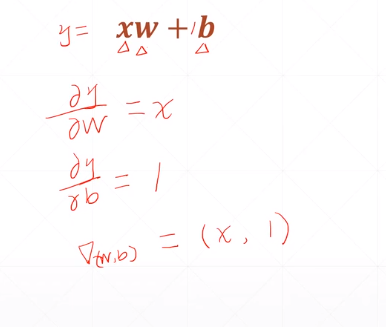 y = xw + b
△ △ △
∂y/∂w = x
∂y/∂b = 1
∇(w,b) = (x, 1)